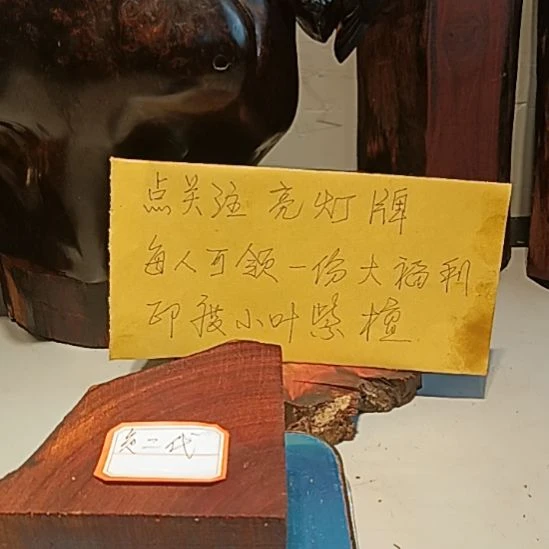 点关注 亮灯牌
每人可领一份大福利
印度小叶紫檀
负二代